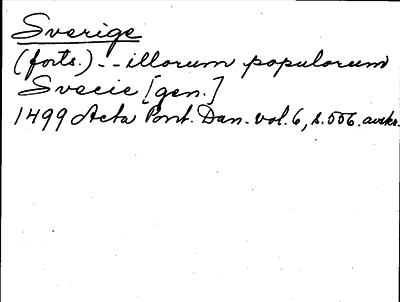 Sverige
(forts.) - - illorum popularum
Svecie [gen.]
1499 Acta Pont. Dan. vol. 6, s. 556. avskr.